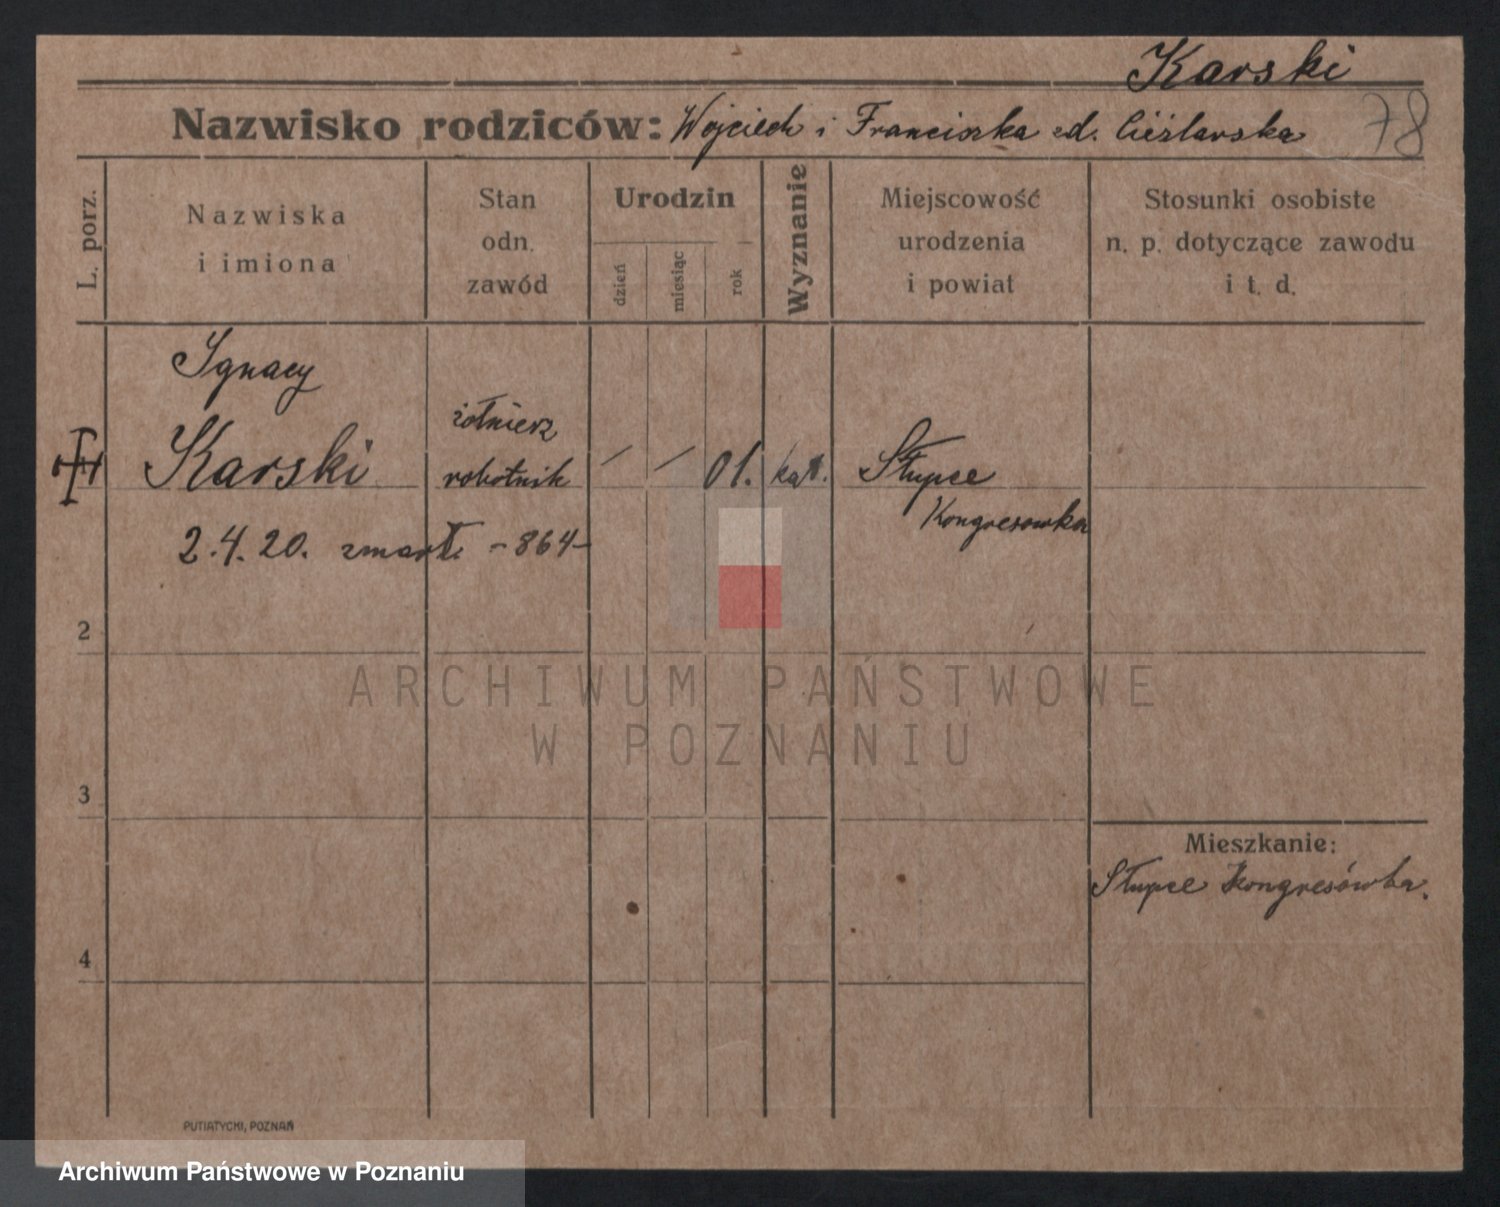 Karski
78
Nazwisko rodziców: Wojciech i Franciszka zd. Cieślarska
L. porz.
Nazwiska
i imiona
Stan
odn.
zawód
Urodzin
dzień
miesiąc
rok
Wyznanie
Miejscowość
urodzenia
i powiat
Stosunki osobiste
n. p. dotyczące zawodu
i t. d.
Ignacy
Karski
żołnierz
robotnik
01.
kat.
Słupce
Kongresowka
2.4.20. zmarł. -864-
2
3
4
Mieszkanie:
Słupce Kongresówka.
PUTIATYCKI, POZNAŃ
ARCHIWUM PAŃSTWOWE
W POZNANIU
Archiwum Państwowe w Poznaniu